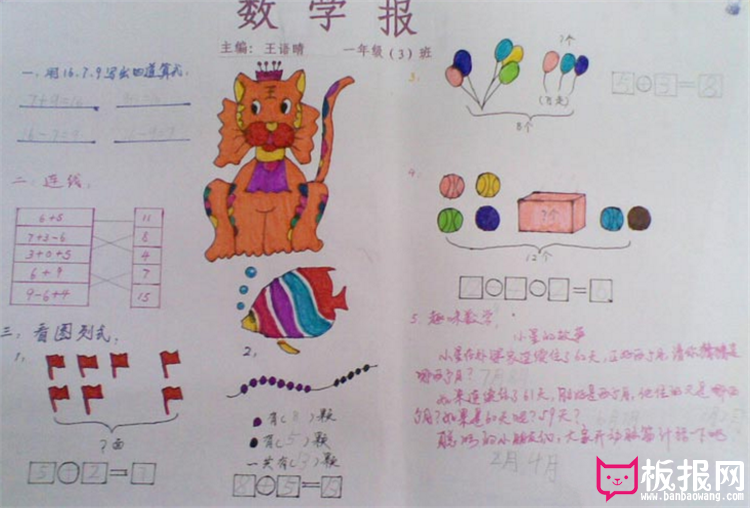 数学报
主编：王语晴 一年级（3）班
一、用16、7、9写出四道算式。
7+9=16
16-7=9
二、连线。
6+5 11
7+3-6 8
3+0+5 4
6+9 7
9-6+4 15
三、看图列式。
1、
?面
2、
有(8)颗
有(5)颗
一共有(13)颗
8+5=13
3、
?个
(飞走)
8个
5+3=8
4、
?个
12个
5、趣味数学。
小星的故事
小星在外婆家连续住了62天，正好两个月，请你猜猜是
哪两个月？
如果连续住了61天，刚好是两个月，他住的又是哪两
个月？如果是60天呢？59天？
聪明的小朋友们，大家开动脑筋计算一下吧
2月 4月
板报网
www.banbaowang.com